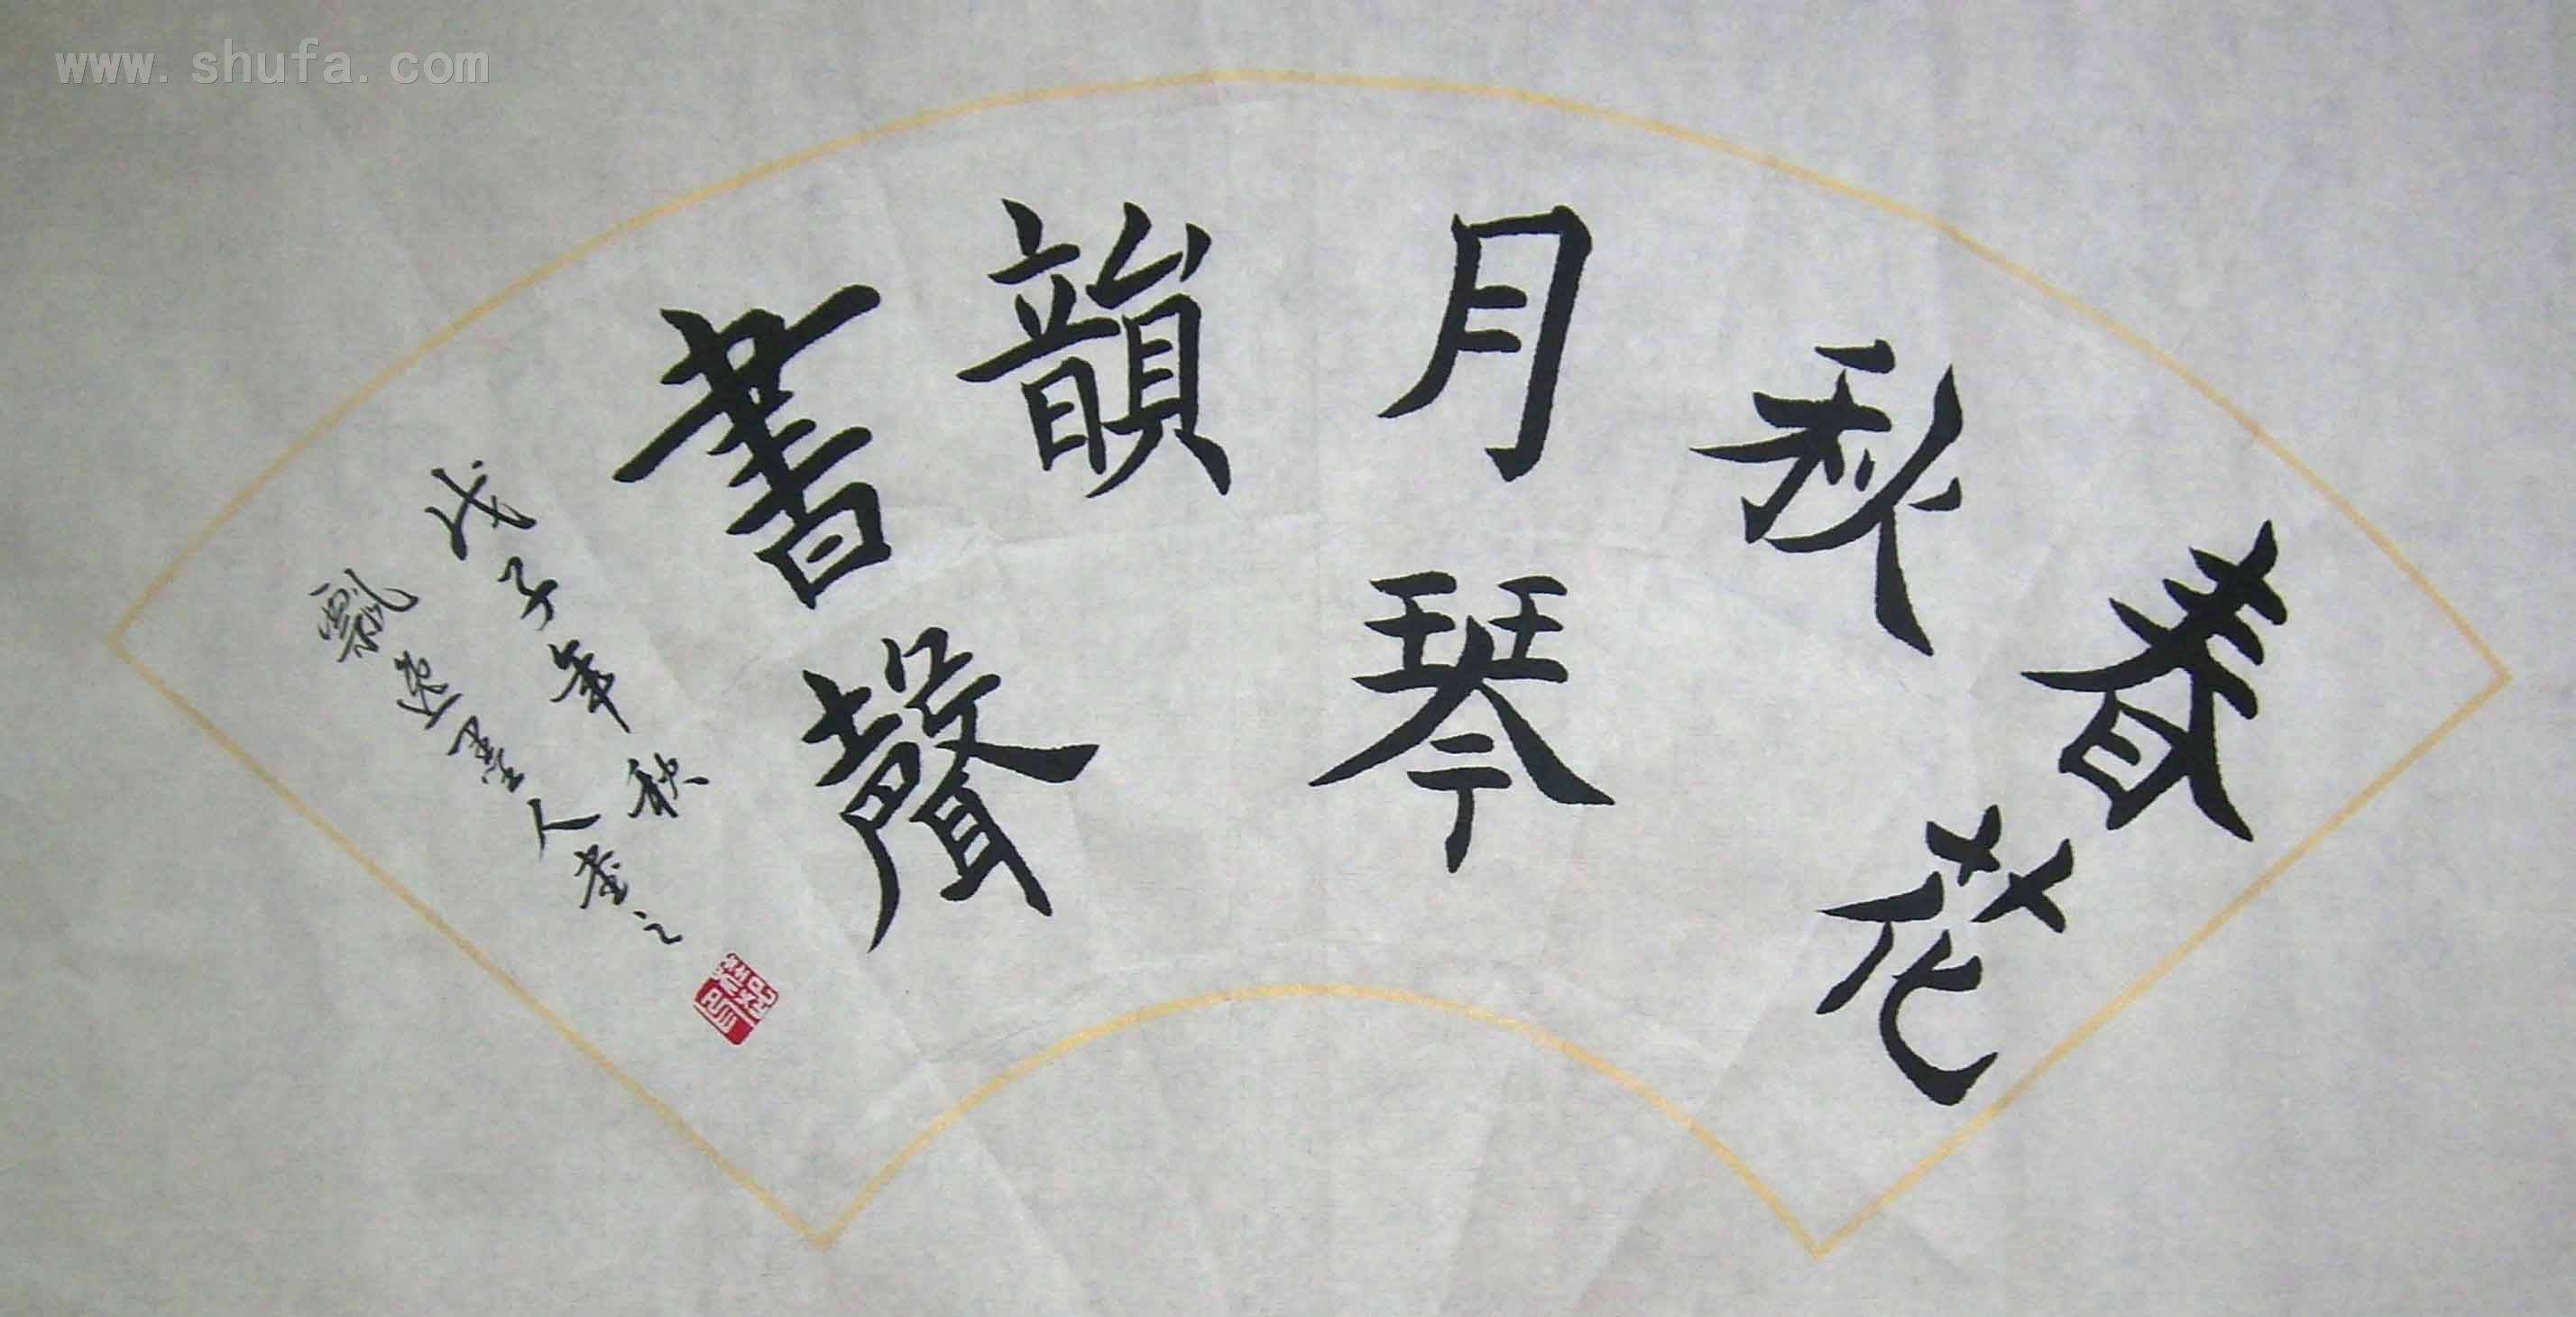 www.shufa.com
春花
秋
月琴
韻
書聲
戊子年秋
飄逸墨人書之